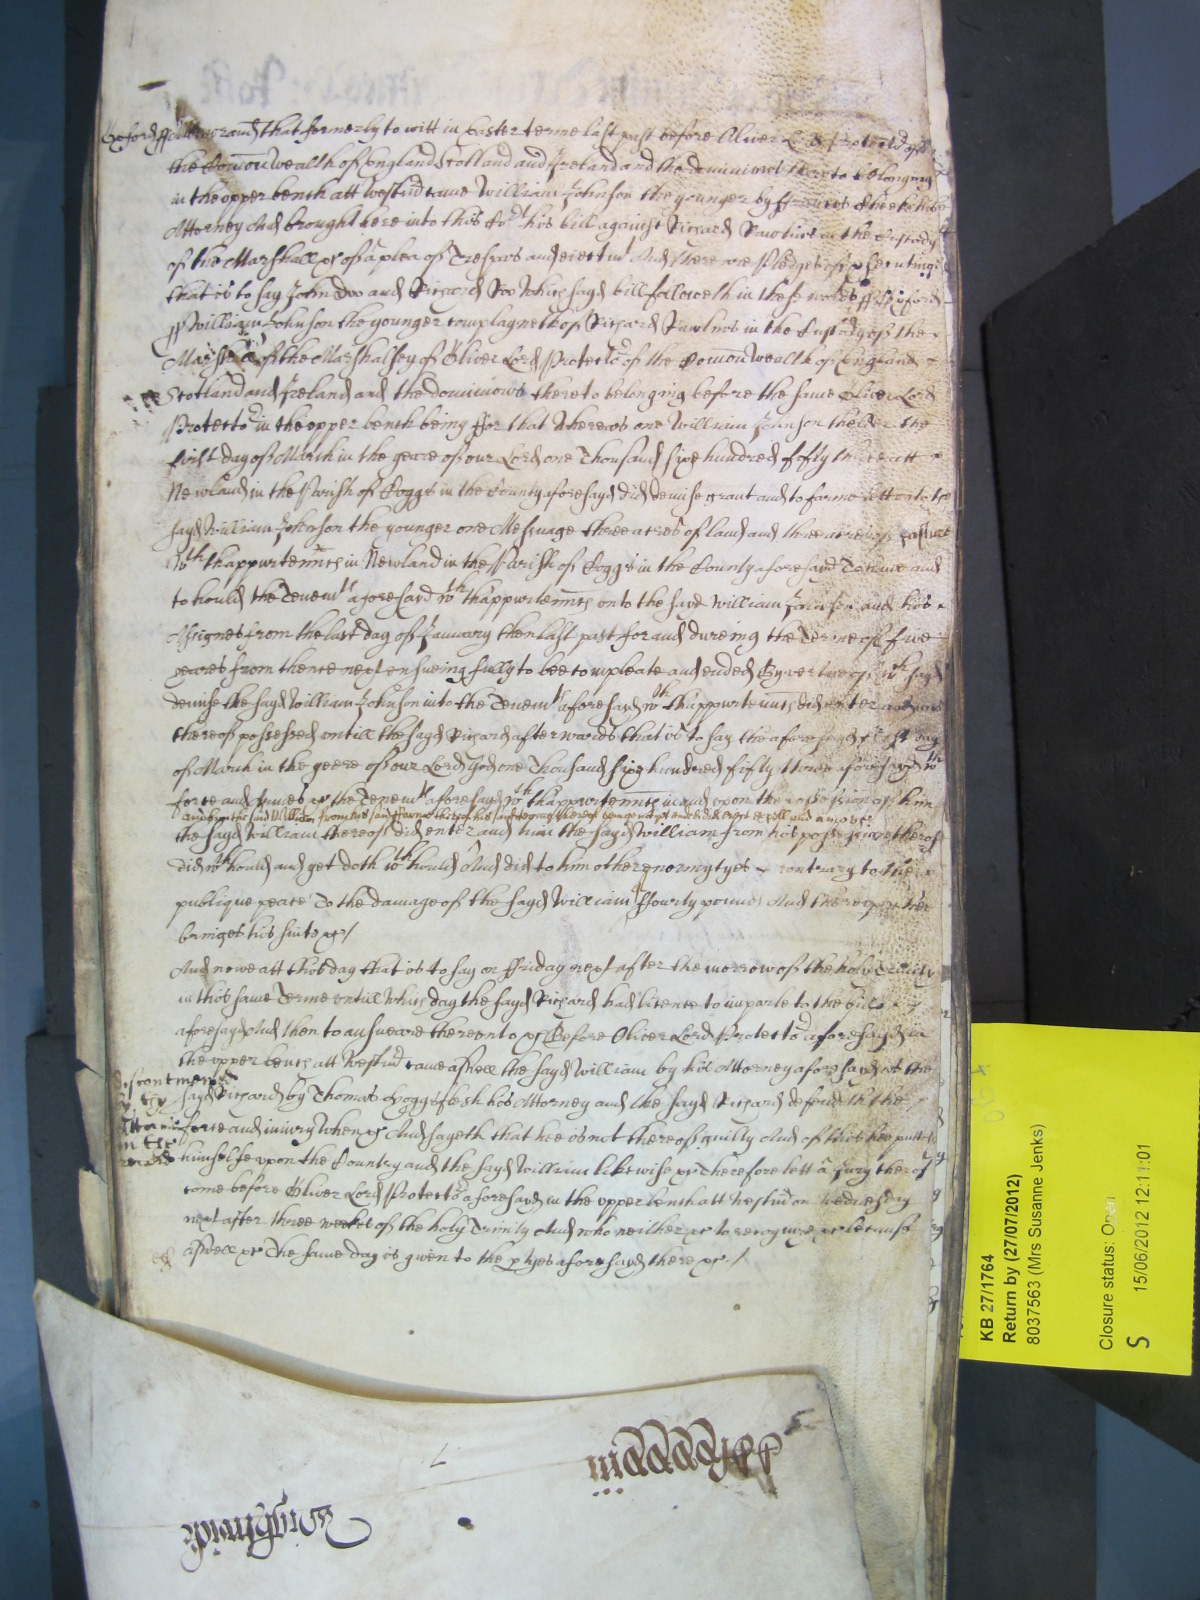 Oxford ss Memorand that formerly to witt in Easter terme last past before Oliver Lord Protector of
the Comon wealth of England Scotland and Ireland and the dominions thereto belonging
in the upper bench att Westmr came William Johnson the younger by his
Attorney And brought here into this Cort his bill against Richard Rawlins in the Custody
of the Marshall &c of a plea of Trespas and eiectmt And there are Pledges of prosecuting
that is to say John Doo and Richard Roo Which sayd bill followeth in these words ss Oxford
ss William Johnson the younger complayneth of Richard Rawlins in the Custody of the
Marshall of the Marshalsey of Oliver Lord Protector of the Comon wealth of England
Scotland and Ireland and the dominions thereto belonging before the same Oliver Lord
Protector in the upper bench being ffor that Whereas one William Johnson thelder the
first day of March in the yeare of our Lord one Thousand six hundred fifty three att
Newland in the Parish of Coggs in the County aforesayd did demise grant and to farme lett to the
sayd William Johnson the younger one Messuage three acres of land and three acres of pasture
wth thappurtennces in Newland in the Parish of Coggs in the County aforesayd To have and
to hould the Tenemts aforesayd wth thappurtennces unto the sayd William Johnson and his
Assignes from the last day of January then last past for and dureing the Terme of five
yeares from thence next ensueing fully to bee compleate and ended By vertue of wch sayd
demise the sayd William Johnson into the Tenemts aforesayd wth thappurtennces did enter and was
thereof possessed untill the sayd Richard afterwards that is to say the aforesayd first day
of March in the yeare of our Lord God one Thousand six hundred fifty three aforesayd wth
force and armes &c the Tenemts aforesayd wth thappurtennces in and upon the possession of him
and him the said William from his said Farme thereof his said terme thereof being not yet ended did eiect expell and amove
the sayd William thereof did enter and him the sayd William from his possession thereof
did wthhould and yet doth wthhould And did to him other enormytyes contrary to the
publique peace To the damage of the sayd William ffourty pounds And thereupon hee
bringes his suite &c /
And nowe att this day that is to say on ffriday next after the morrow of the holy Trinity
in this same Terme untill which day the sayd Richard had licence to imparle to the bill
aforesayd And then to answeare thereunto &c Before Oliver Lord Protector aforesayd in
the upper bench att Westmr came aswell the sayd William by his Attorney aforesayd as the
sayd Richard by Thomas Hoggsflesh his Attorney and the sayd Richard defendeth the
force and iniury when &c And sayeth that hee is not thereof guilty And of this hee putteth
himselfe upon the Country and the sayd William likewise &c Therefore lett a Jury thereof
come before Oliver Lord Protector aforesayd in the upper bench att Westmr on Wednesday
next after three weekes of the holy Trinity And who neither &c to recognize &c because
aswell &c The same day is given to the partyes aforesayd there &c /
KB 27/1764
Return by (27/07/2012)
8037563 (Mrs Susanne Jenks)
Closure status: Open
S 15/06/2012 12:11:01
Wightwick